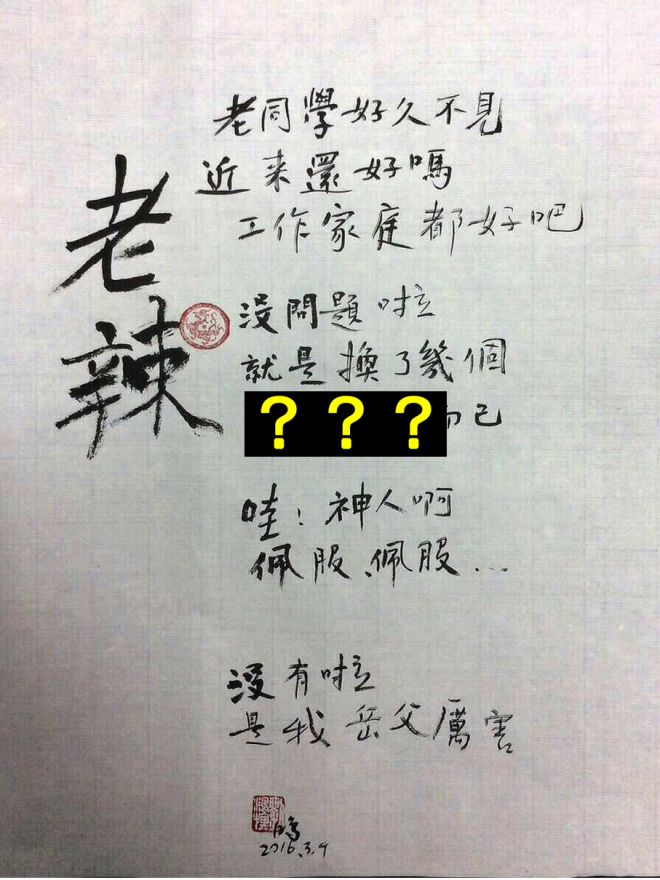 老辣
老同學好久不見
近来還好嗎
工作家庭都好吧
沒問題啦
就是換了幾個
？？？而已
哇！神人啊
佩服佩服…
沒有啦
是我岳父厲害
2016.3.9